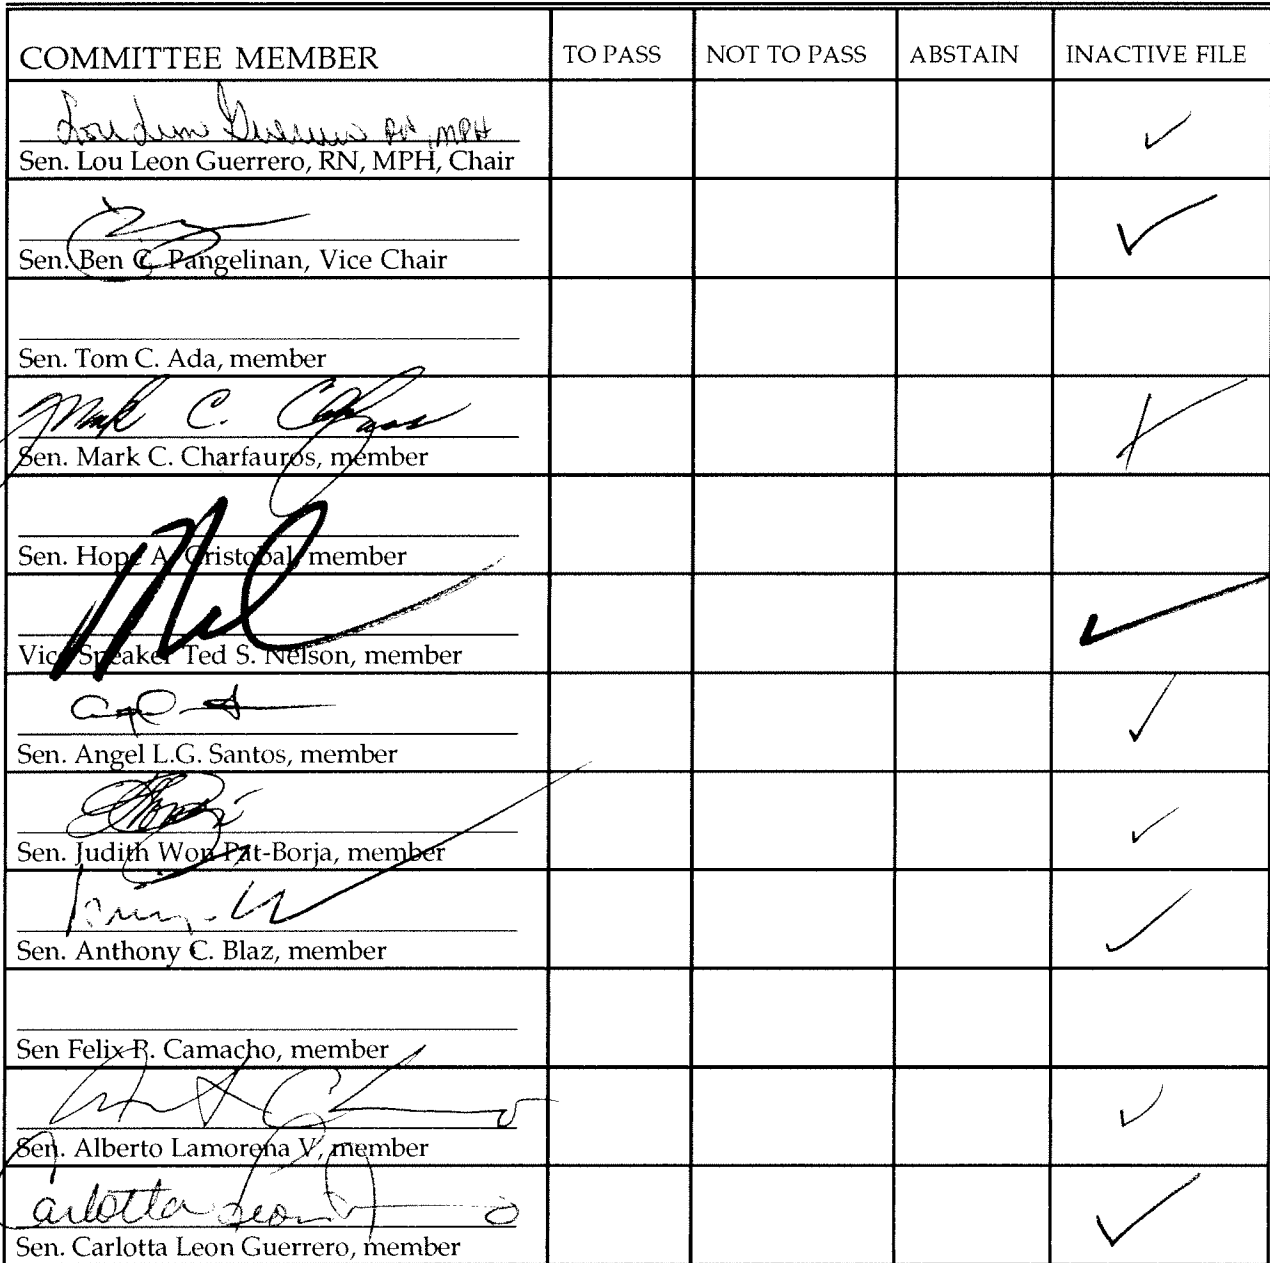 COMMITTEE MEMBER TO PASS NOT TO PASS ABSTAIN INACTIVE FILE
Lou Leon Guerrero RN, MPH ✓
Sen. Lou Leon Guerrero, RN, MPH, Chair
✓
Sen. Ben C. Pangelinan, Vice Chair
Sen. Tom C. Ada, member
Mark C. Charfauros
Sen. Mark C. Charfauros, member
Sen. Hope A. Cristobal, member
✓
Vice Speaker Ted S. Nelson, member
✓
Sen. Angel L.G. Santos, member
✓
Sen. Judith Won Pat-Borja, member
✓
Sen. Anthony C. Blaz, member
Sen Felix P. Camacho, member
✓
Sen. Alberto Lamorena V, member
Carlotta Leon ✓
Sen. Carlotta Leon Guerrero, member